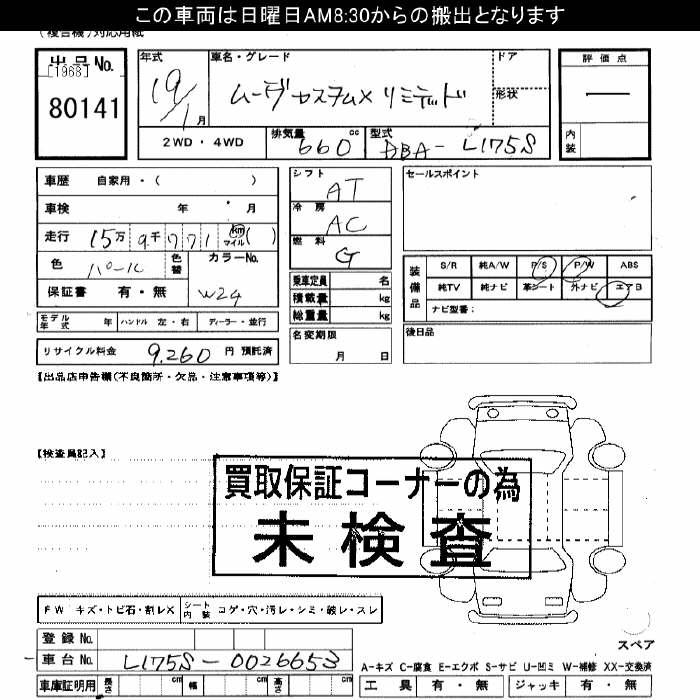 この車両は日曜日AM8:30からの搬出となります
(複合機)対応用紙
出品No.
[1968]
80141
年式 車名・グレード ドア
19/1月 ムーヴカスタムX リミテッド 形状
2WD・4WD 排気量 660 cc 型式 DBA-L175S
評価点
―
内装
車歴 自家用・( )
車検 年・月
走行 15万9千771 km マイル ( )
色 パール 色替 カラーNo.
保証書 有・無 W24
モデル年式 年 ハンドル 左・右 ディーラー・並行
リサイクル料金 9,260 円 預託済
シフト AT
冷房 AC
燃料 G
乗車定員 名
積載量 kg
総重量 kg
名変期限
月 日
セールスポイント
装備品
S/R 純A/W P/S P/W ABS
純TV 純ナビ 革シート 外ナビ エアB
ナビ型番:
後日品
【出品店申告欄(不良箇所・欠品・注意事項等)】
【検査員記入】
買取保証コーナーの為
未検査
FW キズ・トビ石・割レX シート内装 コゲ・穴・汚レ・シミ・破レ・スレ
登録No.
車台No. L175S-0026653
車庫証明用 長さ cm 幅 cm 高さ cm
スペア
A-キズ C-腐食 E-エクボ S-サビ U-凹ミ W-補修 XX-交換済
工具 有・無 ジャッキ 有・無